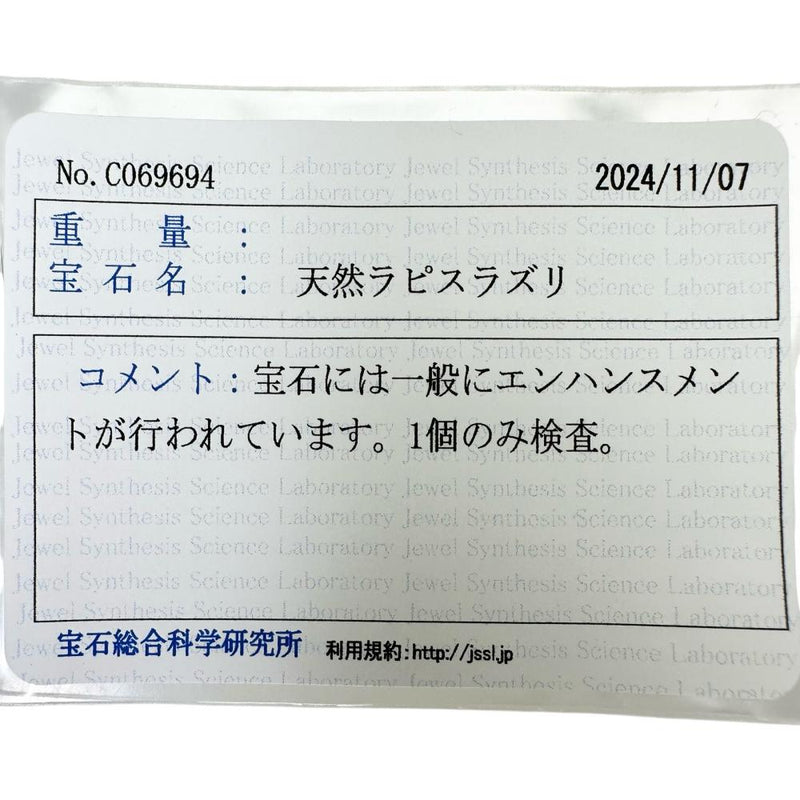 No.C069694 2024/11/07
重量：
宝石名： 天然ラピスラズリ
コメント：宝石には一般にエンハンスメン
トが行われています。1個のみ検査。
宝石総合科学研究所 利用規約：http://jssl.jp
Jewel Synthesis Science Laboratory